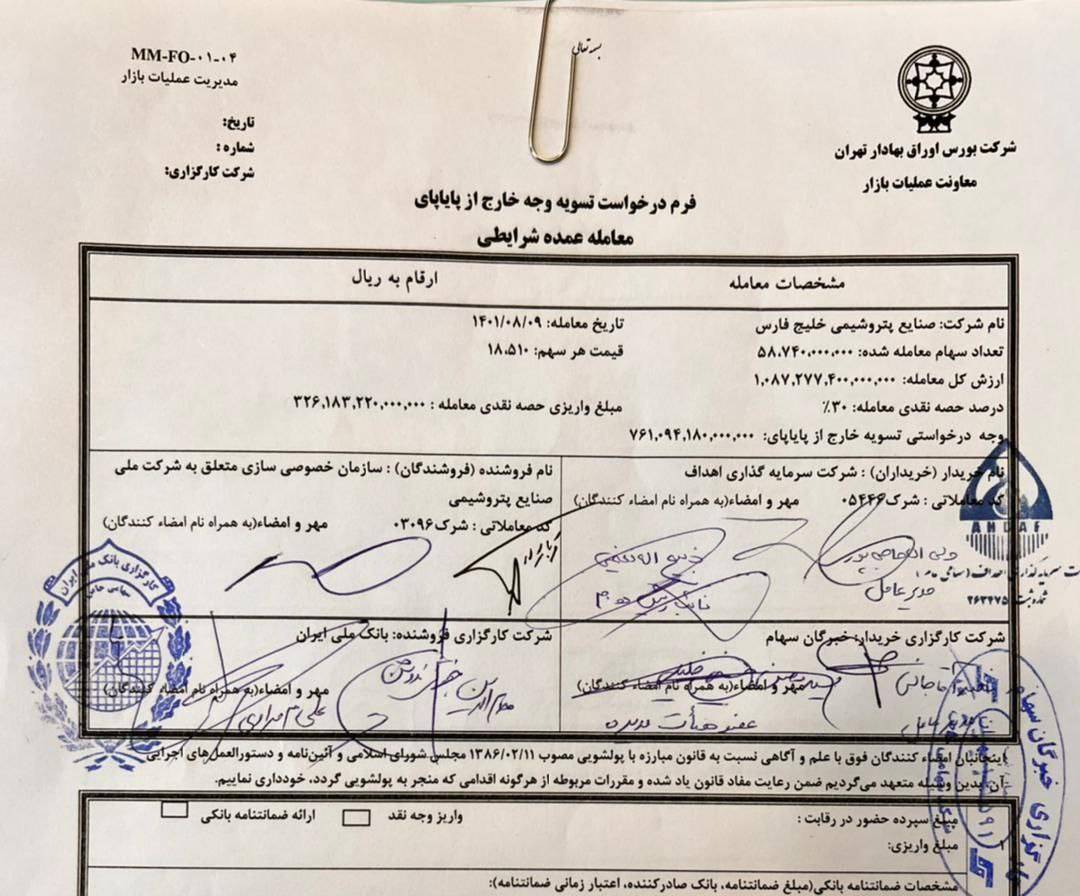 بسمه تعالی
MM-FO-۰۱-۰۴
مدیریت عملیات بازار
تاریخ:
شماره :
شرکت کارگزاری:
شرکت بورس اوراق بهادار تهران
معاونت عملیات بازار
فرم درخواست تسویه وجه خارج از پایاپای
معامله عمده شرایطی
مشخصات معامله
ارقام به ریال
نام شرکت: صنایع پتروشیمی خلیج فارس
تاریخ معامله: ۱۴۰۱/۰۸/۰۹
تعداد سهام معامله شده: ۵۸،۷۴۰،۰۰۰،۰۰۰
قیمت هر سهم: ۱۸،۵۱۰
ارزش کل معامله: ۱،۰۸۷،۲۷۷،۴۰۰،۰۰۰،۰۰۰
درصد حصه نقدی معامله: ۳۰٪
مبلغ واریزی حصه نقدی معامله : ۳۲۶،۱۸۳،۲۲۰،۰۰۰،۰۰۰
وجه درخواستی تسویه خارج از پایاپای: ۷۶۱،۰۹۴،۱۸۰،۰۰۰،۰۰۰
نام خریدار (خریداران) : شرکت سرمایه گذاری اهداف
کد معاملاتی : شرک۰۵۴۴۶
مهر و امضاء(به همراه نام امضاء کنندگان)
نام فروشنده (فروشندگان) : سازمان خصوصی سازی متعلق به شرکت ملی
صنایع پتروشیمی
کد معاملاتی : شرک۰۳۰۹۶
مهر و امضاء(به همراه نام امضاء کنندگان)
AHDAF
مدیرعامل
شماره ثبت ۲۶۳۴۷۵
شرکت کارگزاری خریدار: خبرگان سهام
مهر و امضاء(به همراه نام امضاء کنندگان)
عضو هیأت مدیره
شرکت کارگزاری فروشنده: بانک ملی ایران
مهر و امضاء(به همراه نام امضاء کنندگان)
کارگزاری بانک ملی ایران
سهامی خاص
کارگزاری خبرگان سهام
اینجانبان امضاء کنندگان فوق با علم و آگاهی نسبت به قانون مبارزه با پولشویی مصوب ۱۳۸۶/۰۲/۱۱ مجلس شورای اسلامی و آئین‌نامه و دستورالعمل‌های اجرایی
آن بدین وسیله متعهد می‌گردیم ضمن رعایت مفاد قانون یاد شده و مقررات مربوطه از هرگونه اقدامی که منجر به پولشویی گردد، خودداری نماییم.
۱
مبلغ سپرده حضور در رقابت :
واریز وجه نقد
ارائه ضمانتنامه بانکی
مبلغ واریزی:
مشخصات ضمانتنامه بانکی(مبلغ ضمانتنامه، بانک صادرکننده، اعتبار زمانی ضمانتنامه):